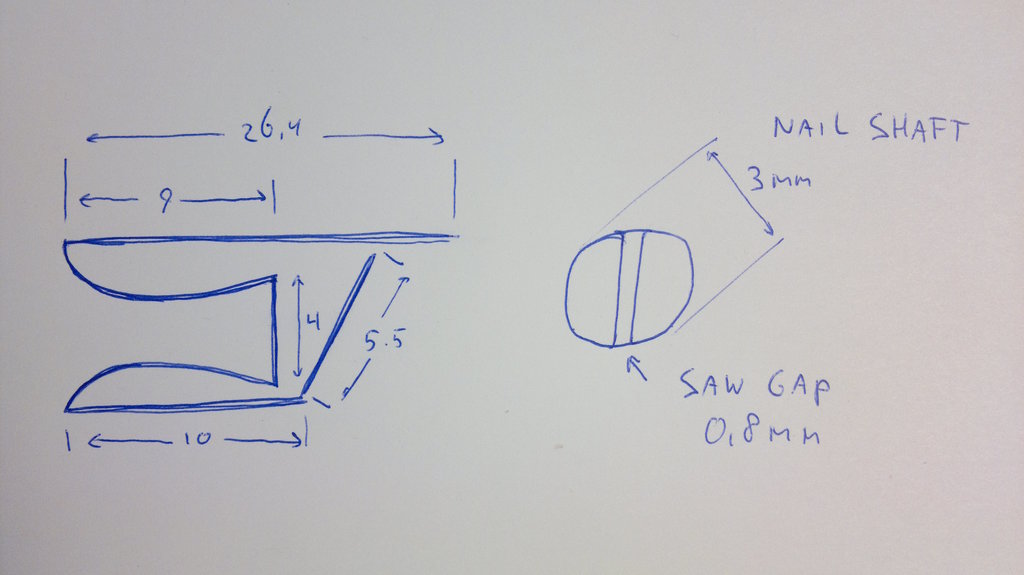 26,4
9
4
5.5
10
NAIL SHAFT
3mm
SAW GAP
0,8mm